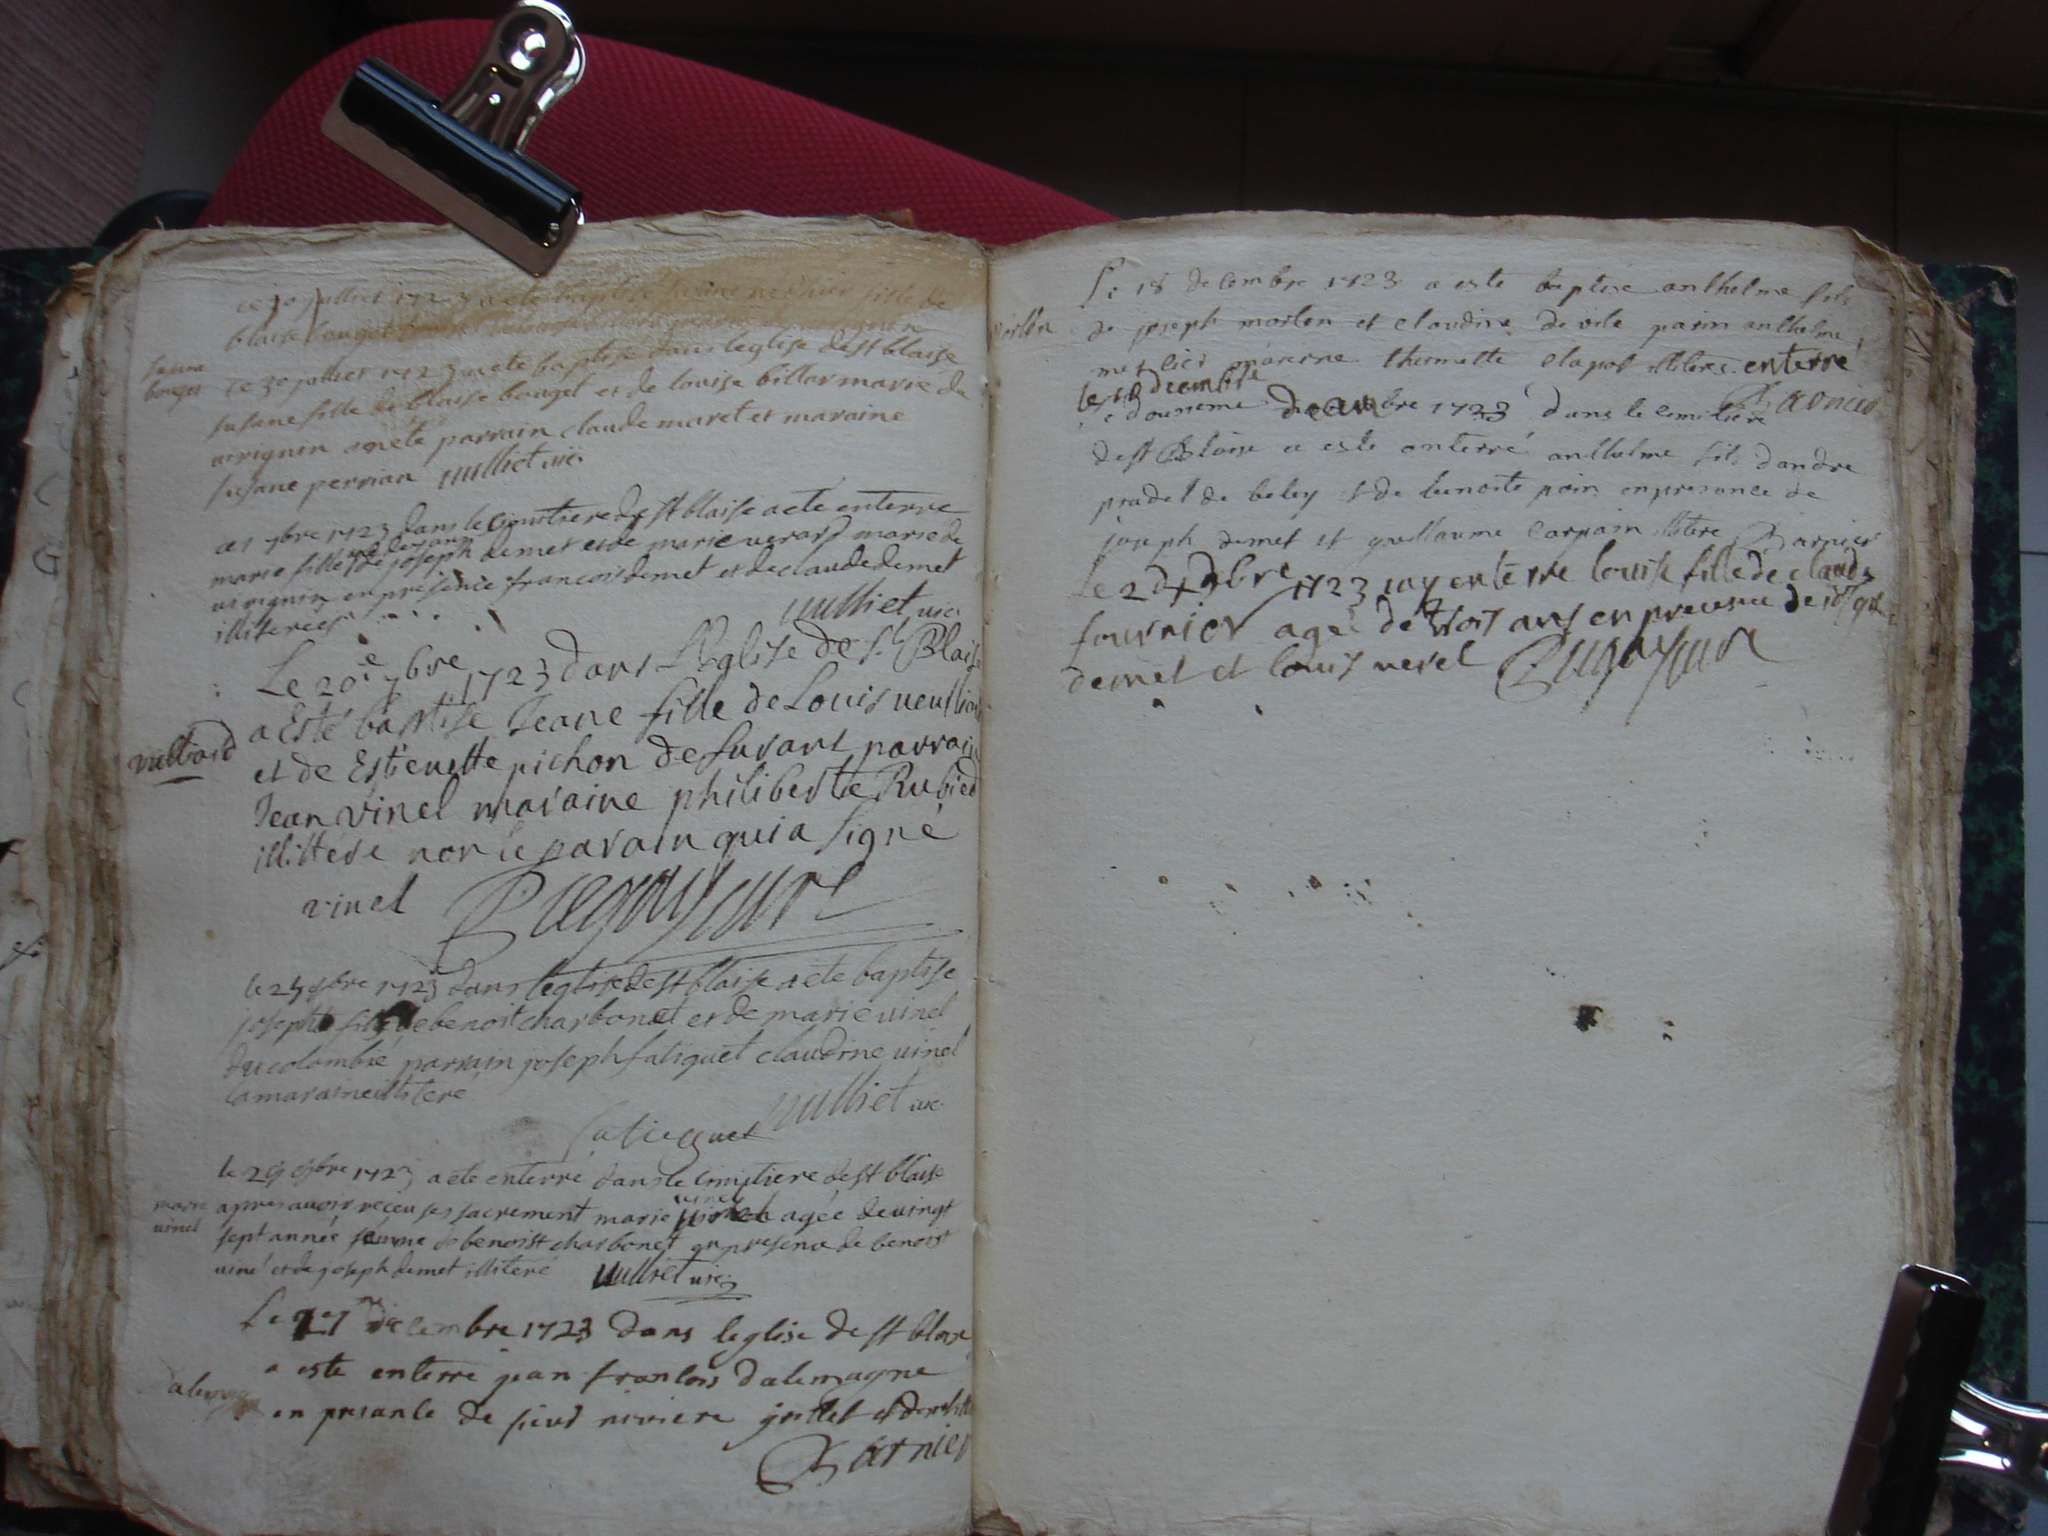 ce 30 juillet 1723 a ete baptise
blaise bouget
susane
bouget
ce 30 juillet 1723 a ete baptise dans leglise de st blaise
susane fille de blaise bouget et de louise billar marie de
virignin a ete parrain claude maret et maraine
susane perrian vulliet vic:
ce 1 7bre 1723 dans le cimitiere de st blaise a ete enterre
marie fille de joseph demet et de marie verard marie de
virignin en presence francois demet et de claude demet
illiteres
vulliet vic:
Le 20e 7bre 1723 dans LEglise de St Blaise
vulliard
a Esté baptise Jeane fille de Louis veulliard
et de Estienette pichon de surant parrain
Jean vinel maraine philiberte Rubied
illittere non le parain qui a signé
vinel Pugeysieure
le 25 8bre 1723 dans leglise de st blaise a ete baptise
joseph fils de benoit charbonet et de marie vinel
du colombié parrain joseph fatiguet claudine vinel
la maraine illiteré
vulliet vic:
le 29 8bre 1723 a ete enterré dans le cimitiere de st blaise
marie
vinel
apres avoir receu ses sacrement marie vinel agée de vingt
sept année femme de benoist charbonet en presence de benoit
vinel et de joseph demet illiteré vulliet vic:
Le decembre 1723 dans leglise de st blaise
a este enterre jean francois dalemagne
dalemagne
en presance de sieur riviere
Garnier
Le 18 decembre 1723 a este baptise anthelme fils
morlon
de joseph morlon et claudine devile parin anthelme
mestier marenne thomette clapot illiteres enterre
le 18 decembre
Garnier
le dousieme decembre 1723 dans le cemitiere
de st Blaise a este anterré anthelme fils dandre
pradel de beley et de benoite poin en presance de
joseph demet et guillaume carpain illitere Garnier
Le 24 xbre 1723 jay enterre louise fille de claude
fournier agé de trois ans en presence de
demet et louis verel Pugeysieure